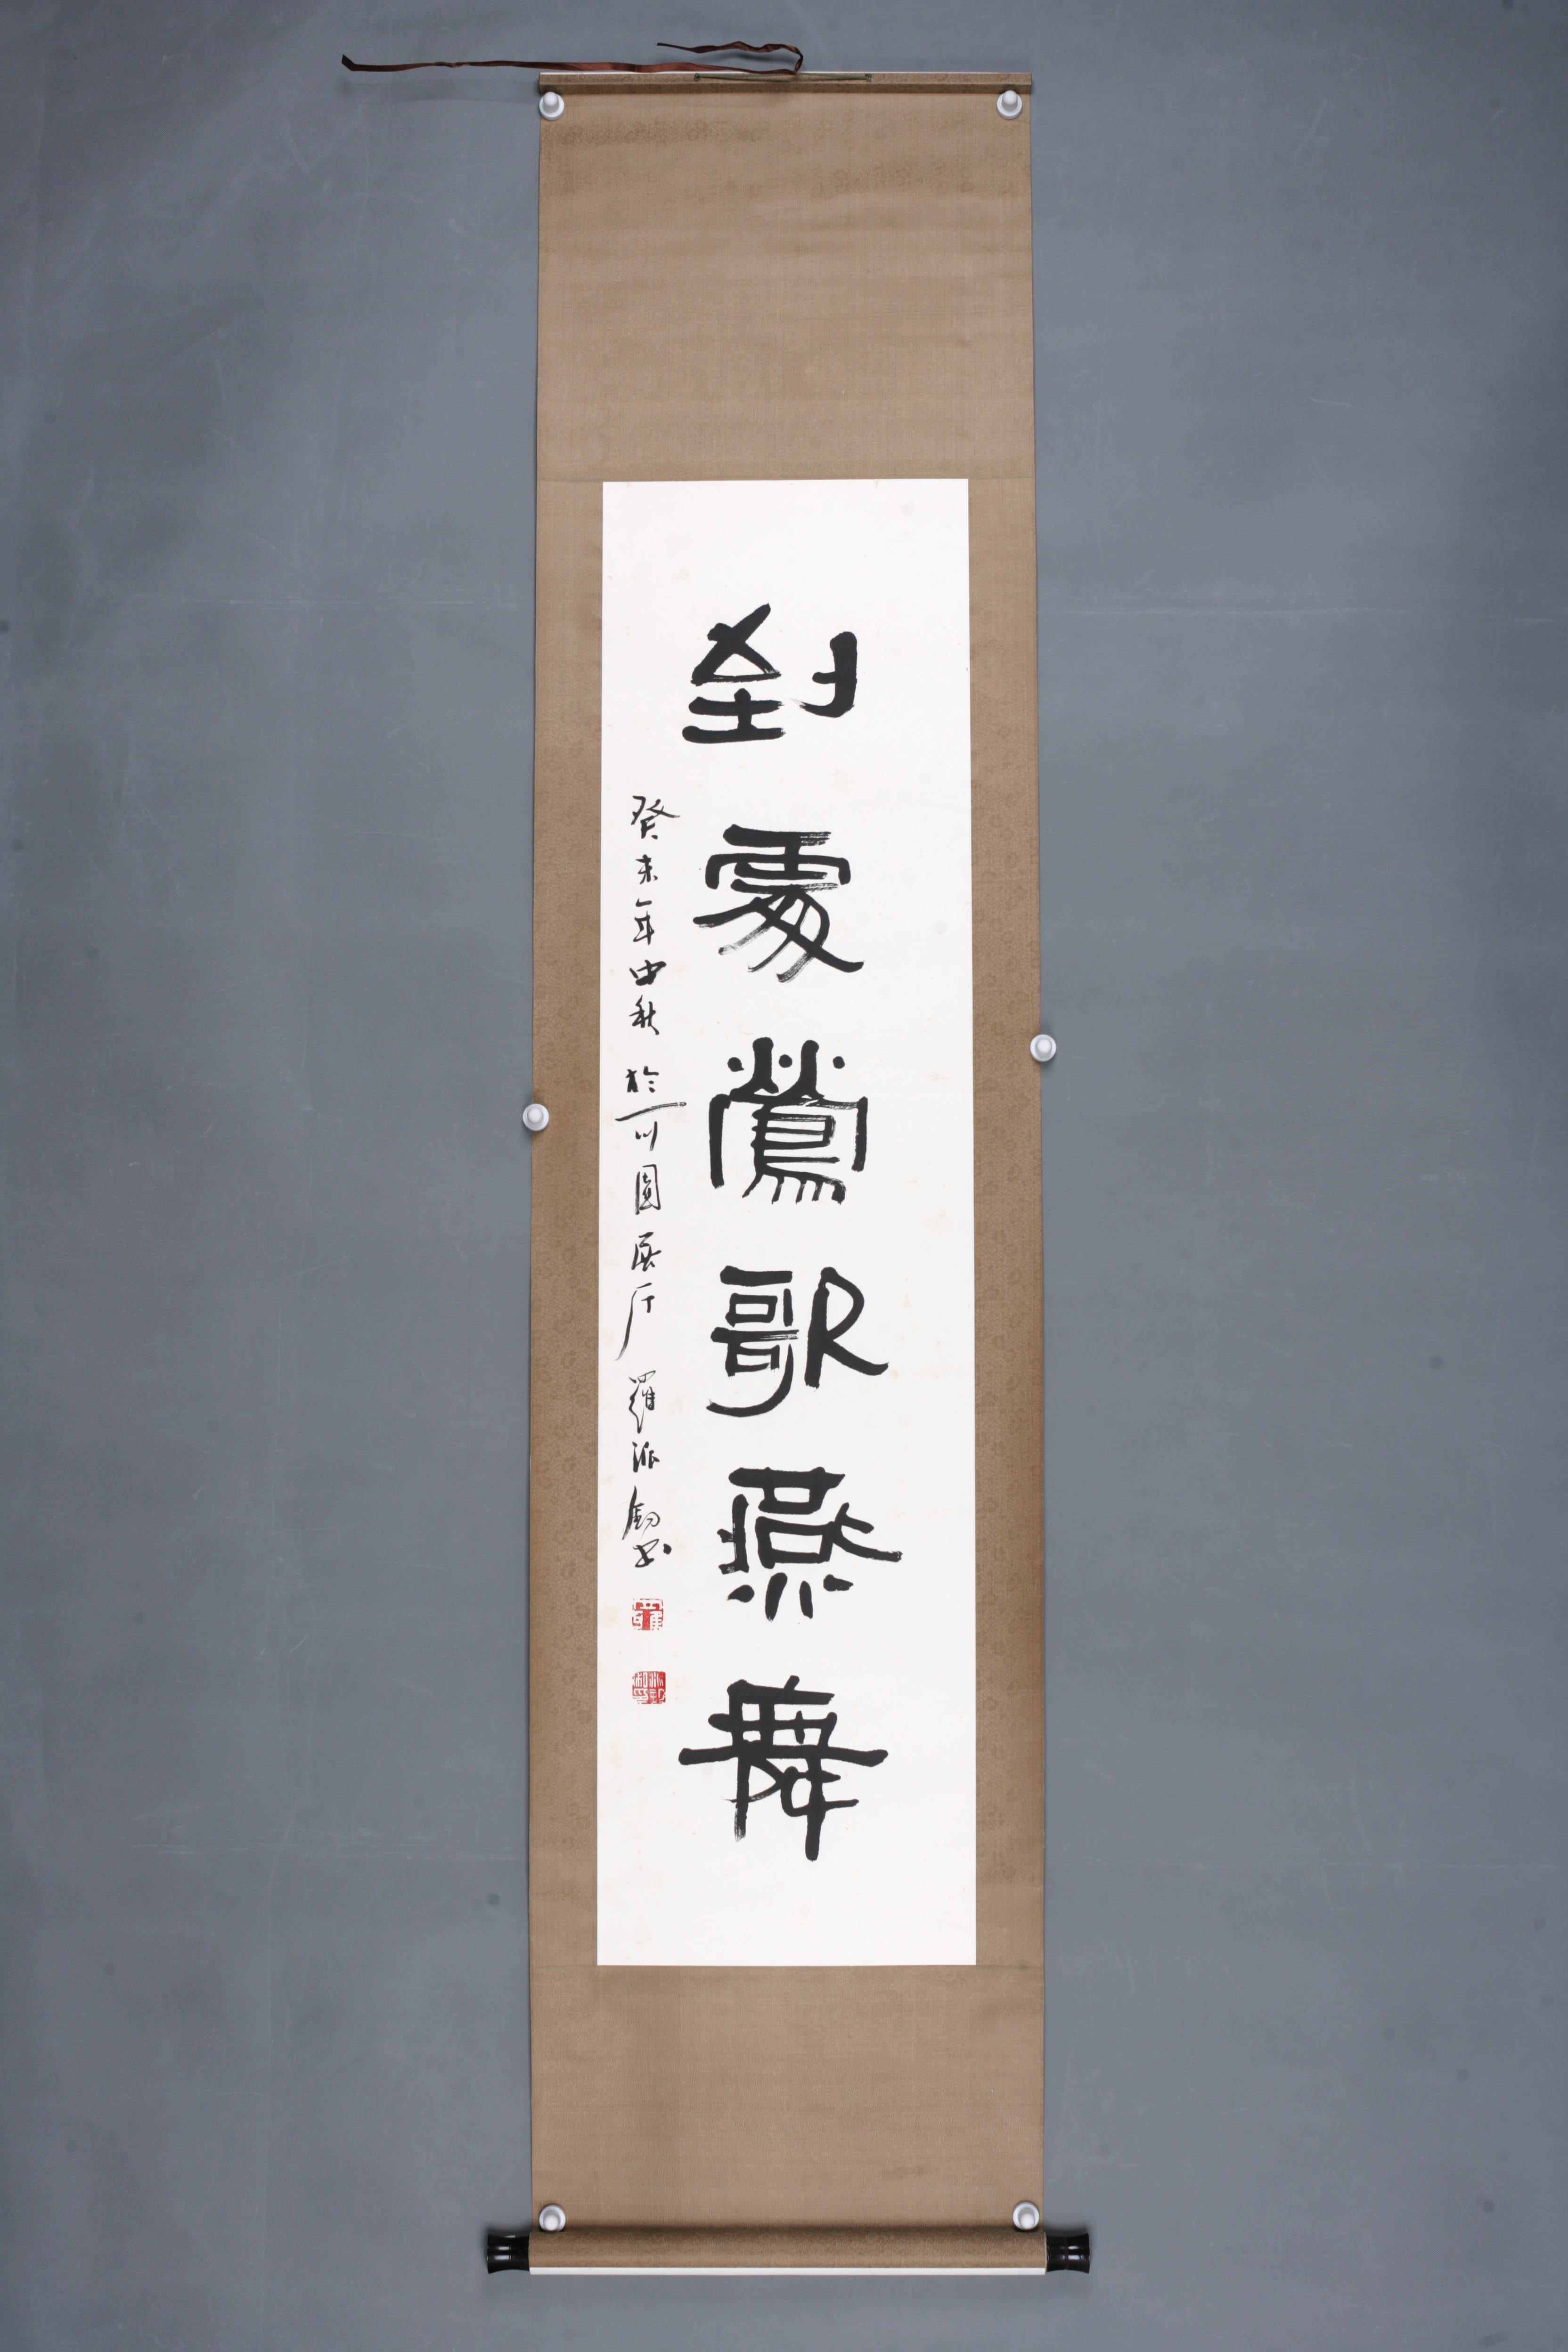 到處鶯歌燕舞
癸未年中秋於可園展厅羅派釗书